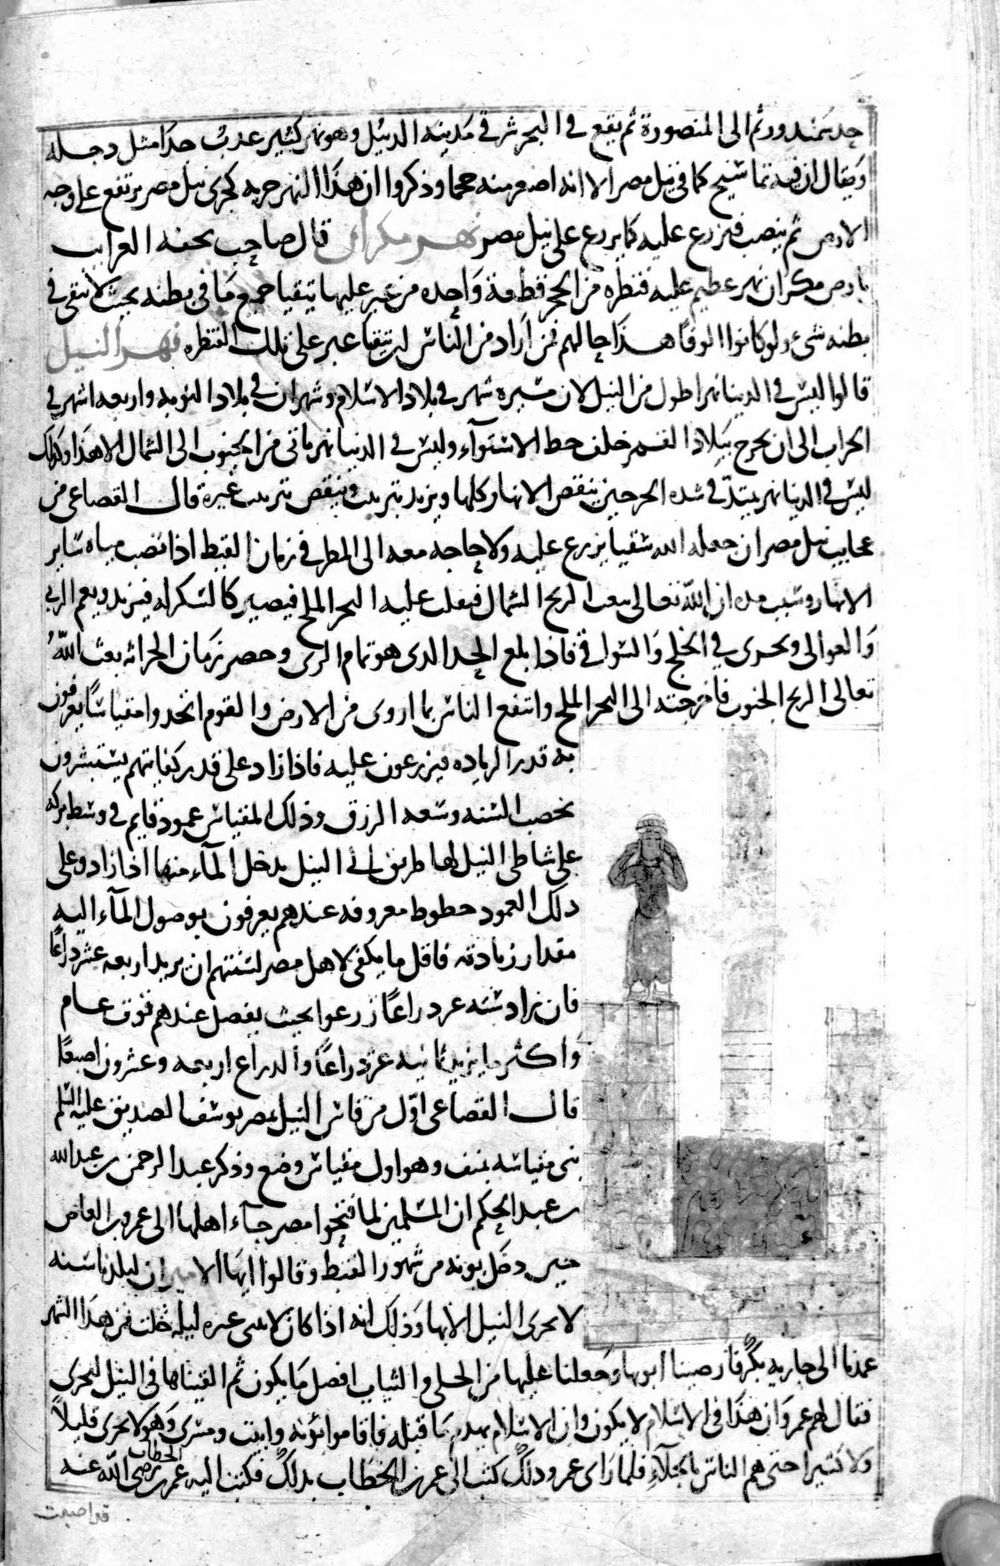 حد سمندور ثم الى المنصورة ثم يقع فى البحر شرقى مدينه الدبيل وهو نهر كثير عذب جدا مثل دجله
ويقال ان فيه تماسيح كما فى نيل مصر الا انه اصغر منه حجما وذكروا ان هذا النهر جريه كجرى نيل مصر يرتفع على وجه
الارض ثم ينصب فيزرع عليه كما يزرع على نيل مصر نهر مكران قال صاحب تحفه الغرايب
بارض مكران نهر عظيم عليه قنطره من الحجر قطعة واحده من عبر عليها يتقيا جميع ما فى بطنه بحيث لا يبقى فى
بطنه شىء ولو كانوا الوفا هذا حالهم فمن اراد من الناس ان يتقيا عبر على تلك القنطره نهر النيل
قالوا ليس فى الدنيا نهرا طول من النيل لان مسيره شهر فى بلاد الاسلام وشهران فى بلاد النوبه واربعه اشهر فى
الخراب الى ان يخرج ببلاد القمر خلف خط الاستوآء وليس فى الدنيا نهر ياتى من الجنوب الى الشمال الا هذا وكذلك
ليس فى الدنيا نهر يمتد فى شده الحر حين ينقص الانهار كلها ويزيد بترتيب وينقص بترتيب غيره قال القضاعى من
عجايب نيل مصر ان جعله الله سقيا يزرع عليه ولا حاجه معه الى المطر فى زمان القيظ اذا نضب مياه ساير
الانهار وسبب مده ان الله تعالى يبعث الريح الشمال فيقلب عليه البحر الملح فيصير كالسكر له فيزيد ويعم الربى
والعوالى ويجرى فى الخلج والسواقى فاذا بلغ الحد الذى هو تمام الرى وحضر زمان الحراثه بعث الله
تعالى الريح الجنوب فاخرجته الى البحر الملح وانتفع الناس بما اروى من الارض والقوم اتخدوا مقياسًا يعرفون
به قدر الزياده فيزرعون عليه فاذا زاد على قدر كفايتهم يستبشرون
بخصب السنه وسعه الرزق وذلك المقياس عمود قايم فى وسط بركه
على شاطى النيل لها طريق الى النيل يدخل المآء منها اذا زاد وعلى
ذلك العمود خطوط معروفه عندهم يعرفون بوصول المآء اليه
مقدار زيادته فاقل ما يكفى لاهل مصر لسنتهم ان يزيد اربعه عشر ذراعًا
فان زاد سته عشر ذراعًا زرعوا بحيث يفضل عندهم قوت عام
واكثر ما يزيد ثمانيه عشر ذراعًا والذراع اربعه وعشرون اصبعًا
قال القضاعى اول من قاس النيل بمصر يوسف الصديق عليه السلم
بنى مقياسه بمنف وهو اول مقياس وضع وذكر عبد الرحمن بن عبد الله
بن عبد الحكم ان المسلمين لما فتحوا مصر جآء اهلها الى عمرو بن العاص
حين دخل بونه من شهور القبط وقالوا ايها الامير ان لبلدنا سنه
لا يجرى النيل الا بها وذلك انه اذا كان لاثنى عشره ليلة خلت من هذا الشهر
عمدنا الى جاريه بكر فارضينا ابويها وجعلنا عليها من الحلى والثياب افضل ما يكون ثم القيناها فى النيل ليجرى
فقال لهم عمرو ان هذا فى الاسلام لا يكون وان الاسلام يهدم ما قبله فاقاموا بونه وابيب ومسرى وهو لا يجرى قليلًا
ولا كثيرا حتى هم الناس بالجلآء فلما راى عمرو ذلك كتب الى عمر بن الخطاب بذلك فكتب اليه عمر بن الخطاب رضى الله عنه
قد اصبت